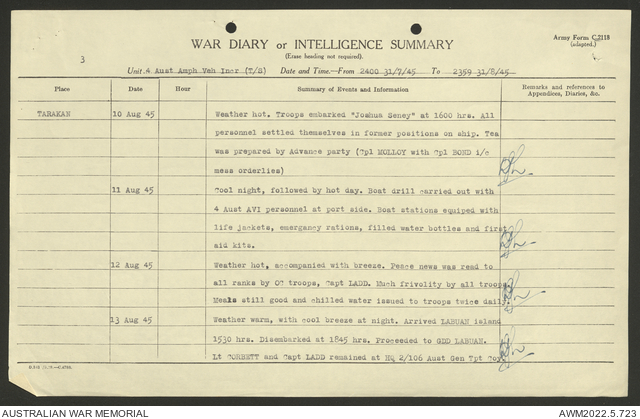 Army Form C.2118
(adapted.)
WAR DIARY or INTELLIGENCE SUMMARY
(Erase heading not required).
3
Unit. 4 Aust Amph Veh Incr (T/S) Date and Time.—From 2400 31/7/45 To 2359 31/8/45
Place Date Hour Summary of Events and Information Remarks and references to Appendices, Diaries, &c.
TARAKAN 10 Aug 45 Weather hot. Troops embarked "Joshua Seney" at 1600 hrs. All
personnel settled themselves in former positions on ship. Tea
was prepared by Advance party (Cpl MOLLOY with Cpl BOND i/c
mess orderlies)
11 Aug 45 Cool night, followed by hot day. Boat drill carried out with
4 Aust AVI personnel at port side. Boat stations equiped with
life jackets, emergancy rations, filled water bottles and first
aid kits.
12 Aug 45 Weather hot, accompanied with breeze. Peace news was read to
all ranks by OC troops, Capt LADD. Much frivelity by all troops.
Meals still good and chilled water issued to troops twice daily.
13 Aug 45 Weather warm, with cool breeze at night. Arrived LABUAN island
1530 hrs. Disembarked at 1845 hrs. Proceeded to GDD LABUAN.
Lt CORBETT and Capt LADD remained at HQ 2/106 Aust Gen Tpt Coy.
AUSTRALIAN WAR MEMORIAL
AWM2022.5.723